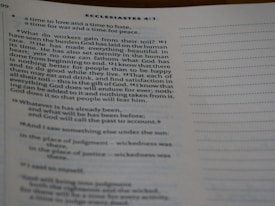 ECCLESIASTES 4:1
a time to love and a time to hate,
a time for war and a time for peace.
9 What do workers gain from their toil? 10 I
have seen the burden God has laid on the human
race. 11 He has made everything beautiful in
its time. He has also set eternity in the human
heart; yet no one can fathom what God has
done from beginning to end. 12 I know that there
is nothing better for people than to be happy
and to do good while they live. 13 That each of
them may eat and drink, and find satisfaction in
all their toil—this is the gift of God. 14 I know that
everything God does will endure forever; nothing
can be added to it and nothing taken from it.
God does it so that people will fear him.
15 Whatever is has already been,
and what will be has been before;
and God will call the past to account.
16 And I saw something else under the sun:
In the place of judgment—wickedness was
there,
in the place of justice—wickedness was
there.
17 I said to myself,
"God will bring into judgment
both the righteous and the wicked,
for there will be a time for every activity,
a time to judge every deed."